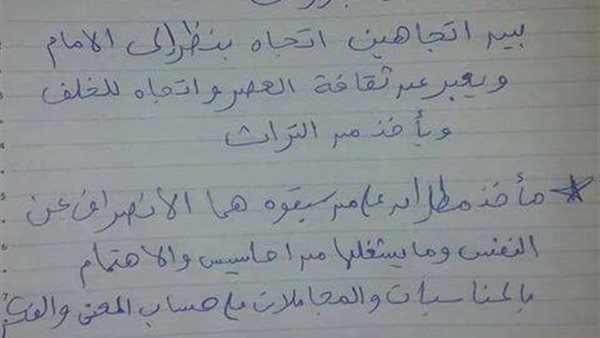 بين اتجاهين اتجاه ينظر إلى الامام
ويعبر عن ثقافة العصر واتجاه للخلف
ويأخذ من التراث
* مأخذ مطران على من سبقوه هما الانصراف عن
النفس وما يشغلها من احاسيس والاهتمام
بالمناسبات والمجاملات على حساب المعنى